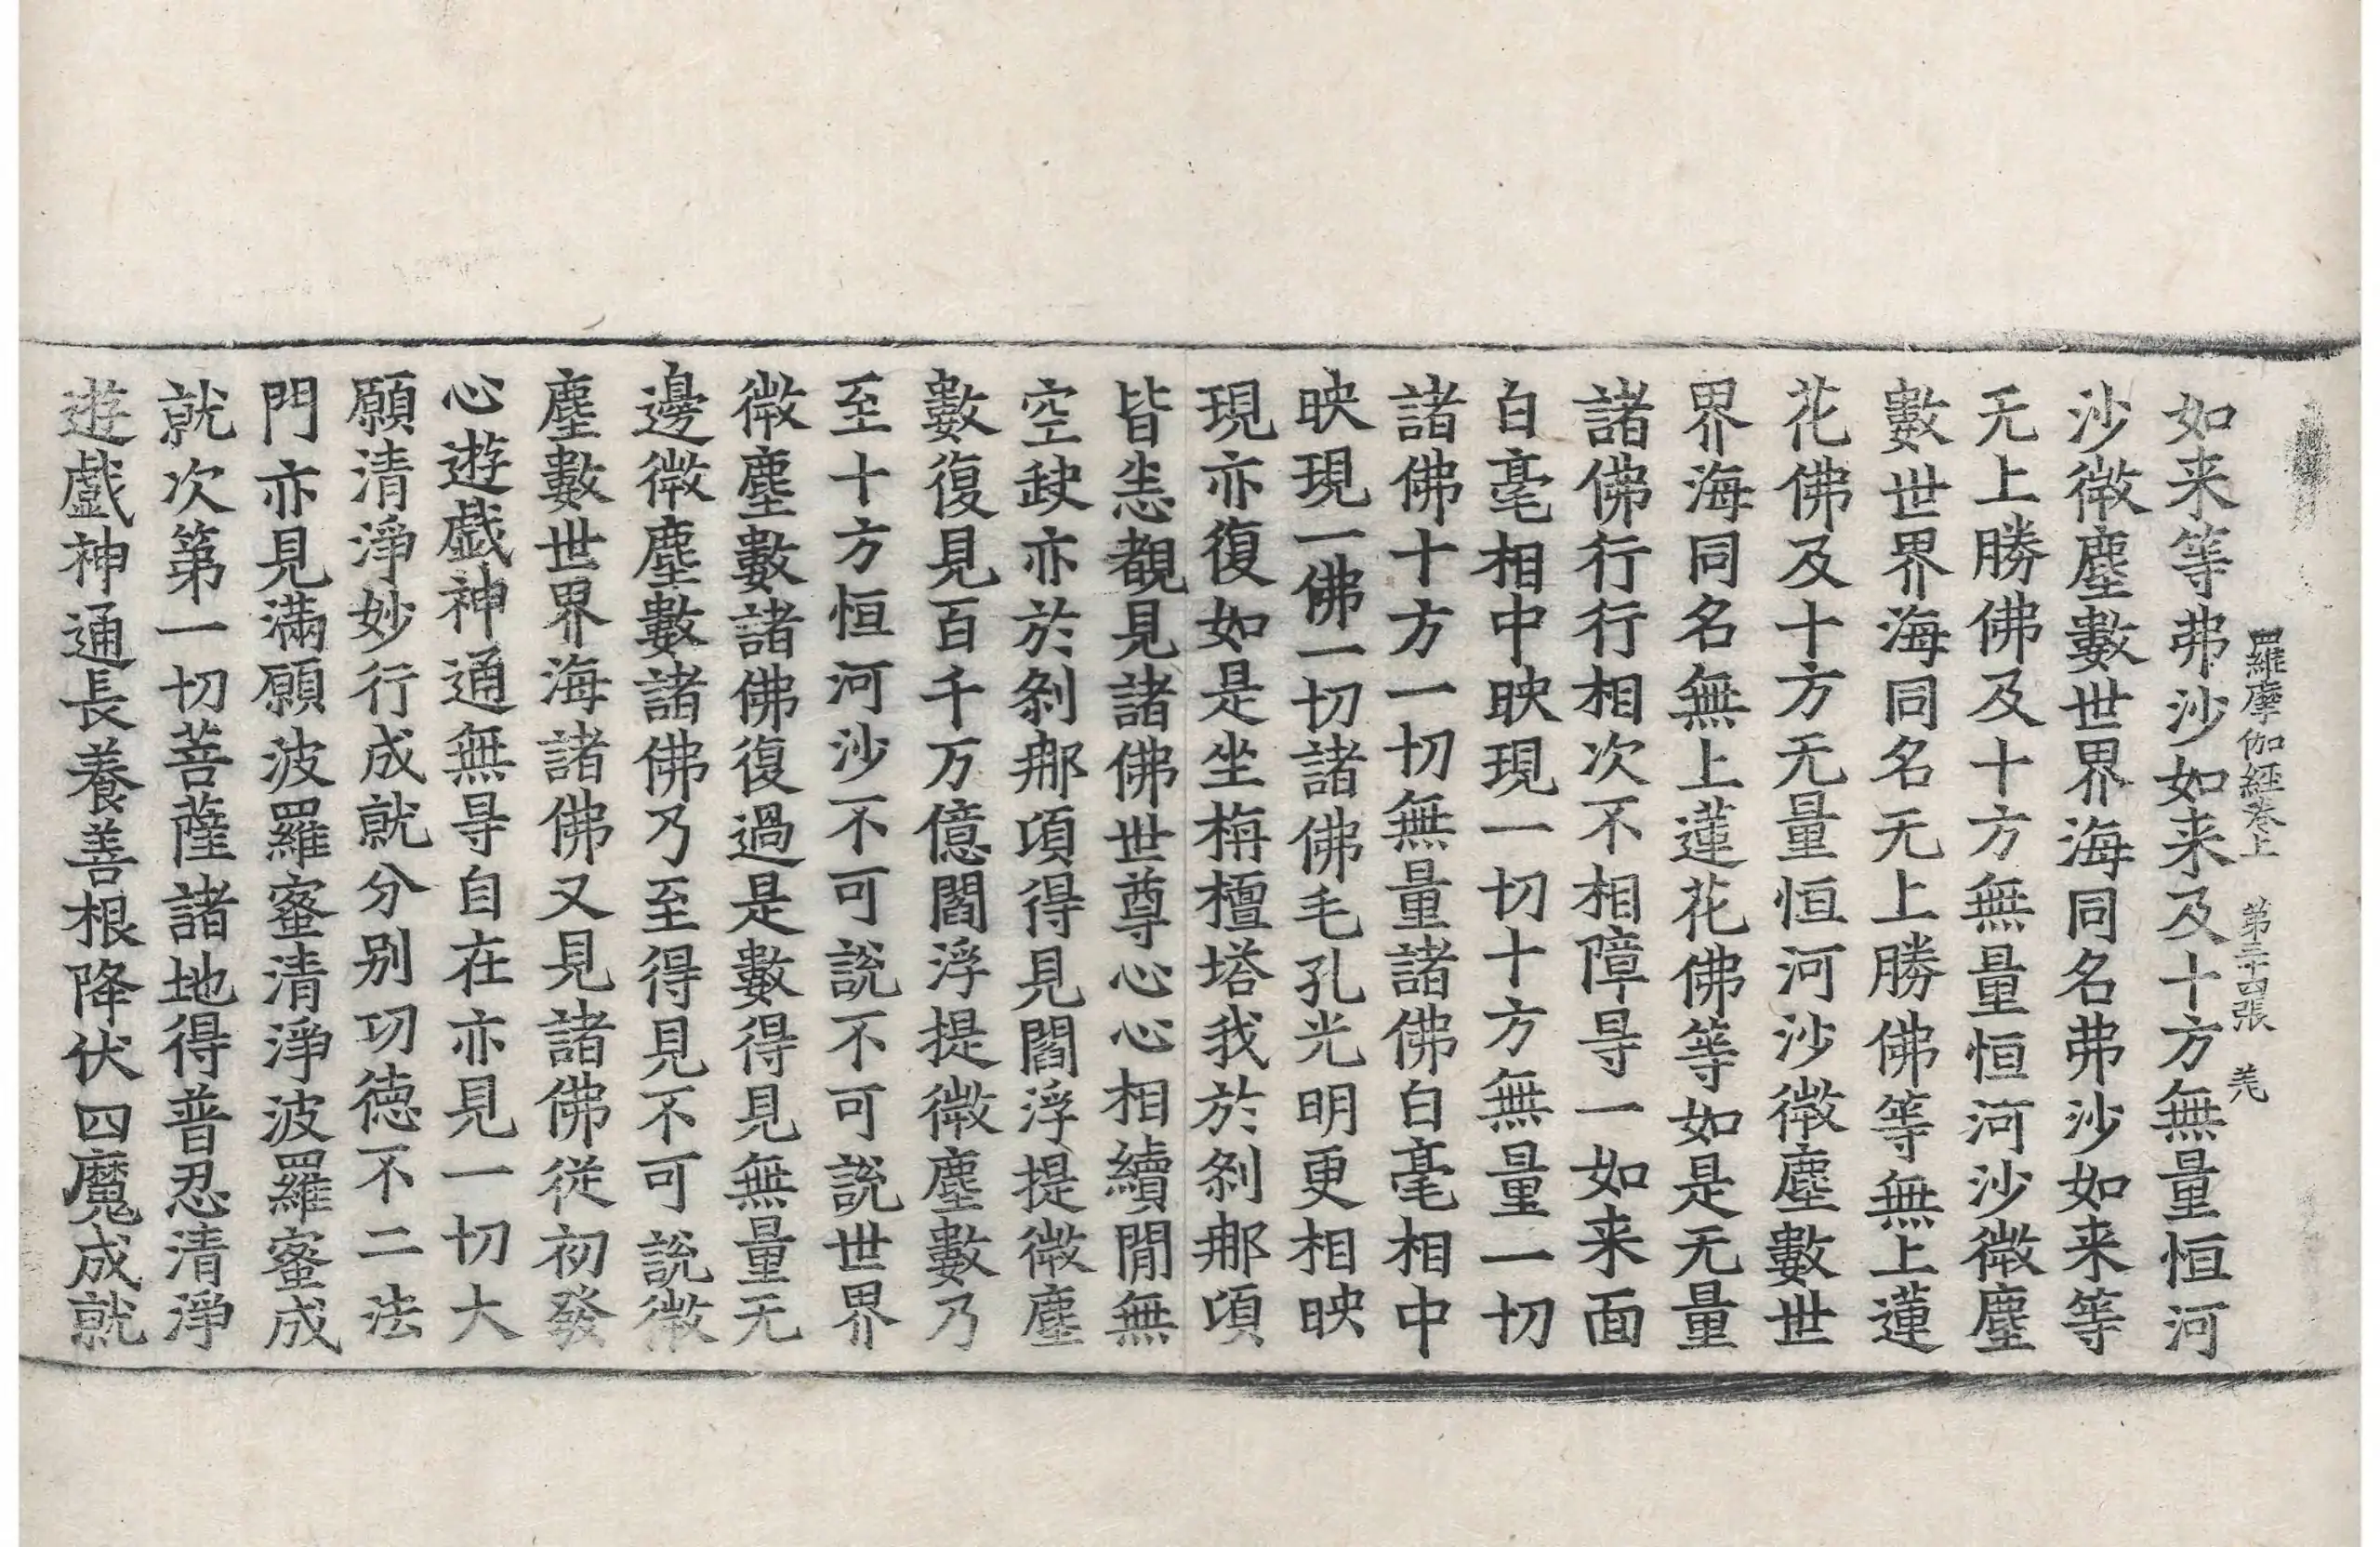 羅摩伽經卷上　第三十四張　羌
如来等弗沙如来及十方無量恒河
沙微塵數世界海同名弗沙如来等
无上勝佛及十方無量恒河沙微塵
數世界海同名无上勝佛等無上蓮
花佛及十方无量恒河沙微塵數世
界海同名無上蓮花佛等如是无量
諸佛行行相次不相障㝵一如来面
白毫相中映現一切十方無量一切
諸佛十方一切無量諸佛白毫相中
映現一佛一切諸佛毛孔光明更相映
現亦復如是坐栴檀塔我於剎那項
皆悉覩見諸佛世尊心心相續閒無
空缺亦於剎那項得見閻浮提微塵
數復見百千万億閻浮提微塵數乃
至十方恒河沙不可說不可說世界
微塵數諸佛復過是數得見無量无
邊微塵數諸佛乃至得見不可說微
塵數世界海諸佛又見諸佛從初發
心遊戲神通無㝵自在亦見一切大
願清淨妙行成就分别功德不二法
門亦見滿願波羅蜜清淨波羅蜜成
就次第一切菩薩諸地得普忍清淨
遊戲神通長養善根降伏四魔成就